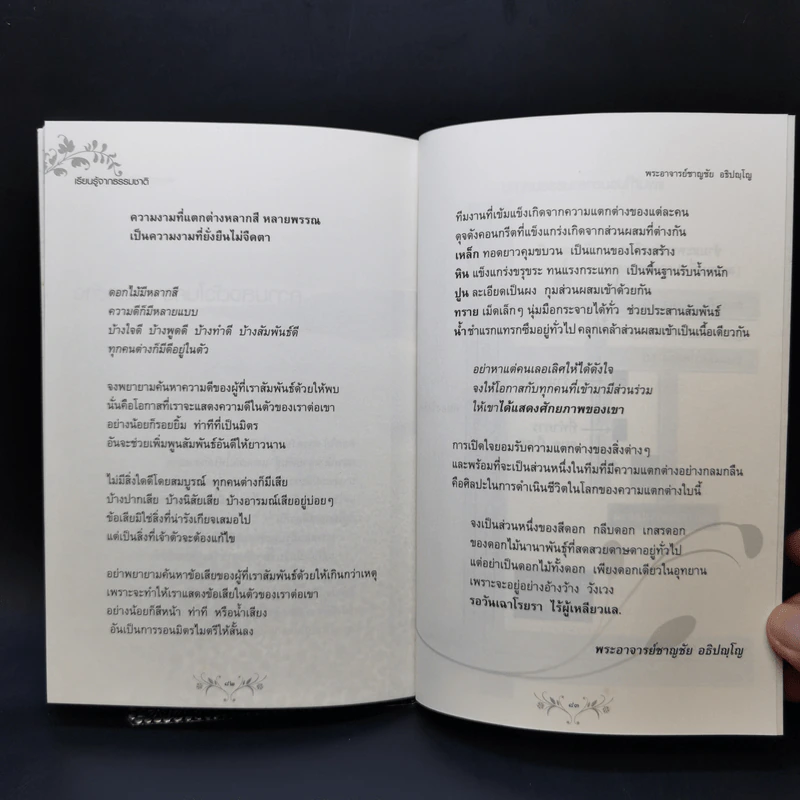 เรียนรู้จากธรรมชาติ
ความงามที่แตกต่างหลากสี หลายพรรณ
เป็นความงามที่ยั่งยืนไม่จืดตา
ดอกไม้มีหลากสี
ความดีก็มีหลายแบบ
บ้างใจดี บ้างพูดดี บ้างทำดี บ้างสัมพันธ์ดี
ทุกคนต่างก็มีดีอยู่ในตัว
จงพยายามค้นหาความดีของผู้ที่เราสัมพันธ์ด้วยให้พบ
นั่นคือโอกาสที่เราจะแสดงความดีในตัวของเราต่อเขา
อย่างน้อยก็รอยยิ้ม ท่าทีที่เป็นมิตร
อันจะช่วยเพิ่มพูนสัมพันธ์อันดีให้ยาวนาน
ไม่มีสิ่งใดดีโดยสมบูรณ์ ทุกคนต่างก็มีเสีย
บ้างปากเสีย บ้างนิสัยเสีย บ้างอารมณ์เสียอยู่บ่อยๆ
ข้อเสียมิใช่สิ่งที่น่ารังเกียจเสมอไป
แต่เป็นสิ่งที่เจ้าตัวจะต้องแก้ไข
อย่าพยายามค้นหาข้อเสียของผู้ที่เราสัมพันธ์ด้วยให้เกินกว่าเหตุ
เพราะจะทำให้เราแสดงข้อเสียในตัวของเราต่อเขา
อย่างน้อยก็สีหน้า ท่าที หรือน้ำเสียง
อันเป็นการรอนมิตรไมตรีให้สั้นลง
๘๒
พระอาจารย์ชาญชัย อธิปญฺโญ
ทีมงานที่เข้มแข็งเกิดจากความแตกต่างของแต่ละคน
ดุจดังคอนกรีตที่แข็งแกร่งเกิดจากส่วนผสมที่ต่างกัน
เหล็ก ทอดยาวคุมขบวน เป็นแกนของโครงสร้าง
หิน แข็งแกร่งขรุขระ ทนแรงกระแทก เป็นพื้นฐานรับน้ำหนัก
ปูน ละเอียดเป็นผง กุมส่วนผสมเข้าด้วยกัน
ทราย เม็ดเล็กๆ นุ่มมือกระจายได้ทั่ว ช่วยประสานสัมพันธ์
น้ำ ชำแรกแทรกซึมอยู่ทั่วไป คลุกเคล้าส่วนผสมเข้าเป็นเนื้อเดียวกัน
อย่าหาแต่คนเลอเลิศให้ได้ดังใจ
จงให้โอกาสกับทุกคนที่เข้ามามีส่วนร่วม
ให้เขาได้แสดงศักยภาพของเขา
การเปิดใจยอมรับความแตกต่างของสิ่งต่างๆ
และพร้อมที่จะเป็นส่วนหนึ่งในทีมที่มีความแตกต่างอย่างกลมกลืน
คือศิลปะในการดำเนินชีวิตในโลกของความแตกต่างใบนี้
จงเป็นส่วนหนึ่งของสีดอก กลีบดอก เกสรดอก
ของดอกไม้นานาพันธุ์ที่สดสวยดาษดาอยู่ทั่วไป
แต่อย่าเป็นดอกไม้ทั้งดอก เพียงดอกเดียวในอุทยาน
เพราะจะอยู่อย่างอ้างว้าง วังเวง
รอวันเฉาโรยรา ไร้ผู้เหลียวแล.
พระอาจารย์ชาญชัย อธิปญฺโญ
๘๓